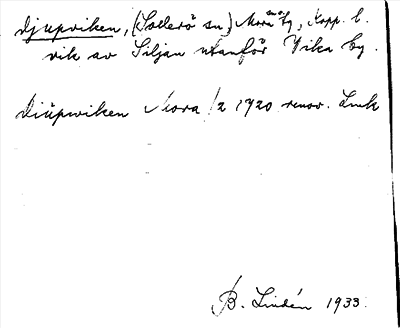 Djupviken, (Sollerö sn) Mora tg, Kopp. l.
vik av Siljan utanför Vika by.
Diüpwiken Mora 1/2 1920 renov. Lmk
B. Lindén 1933.